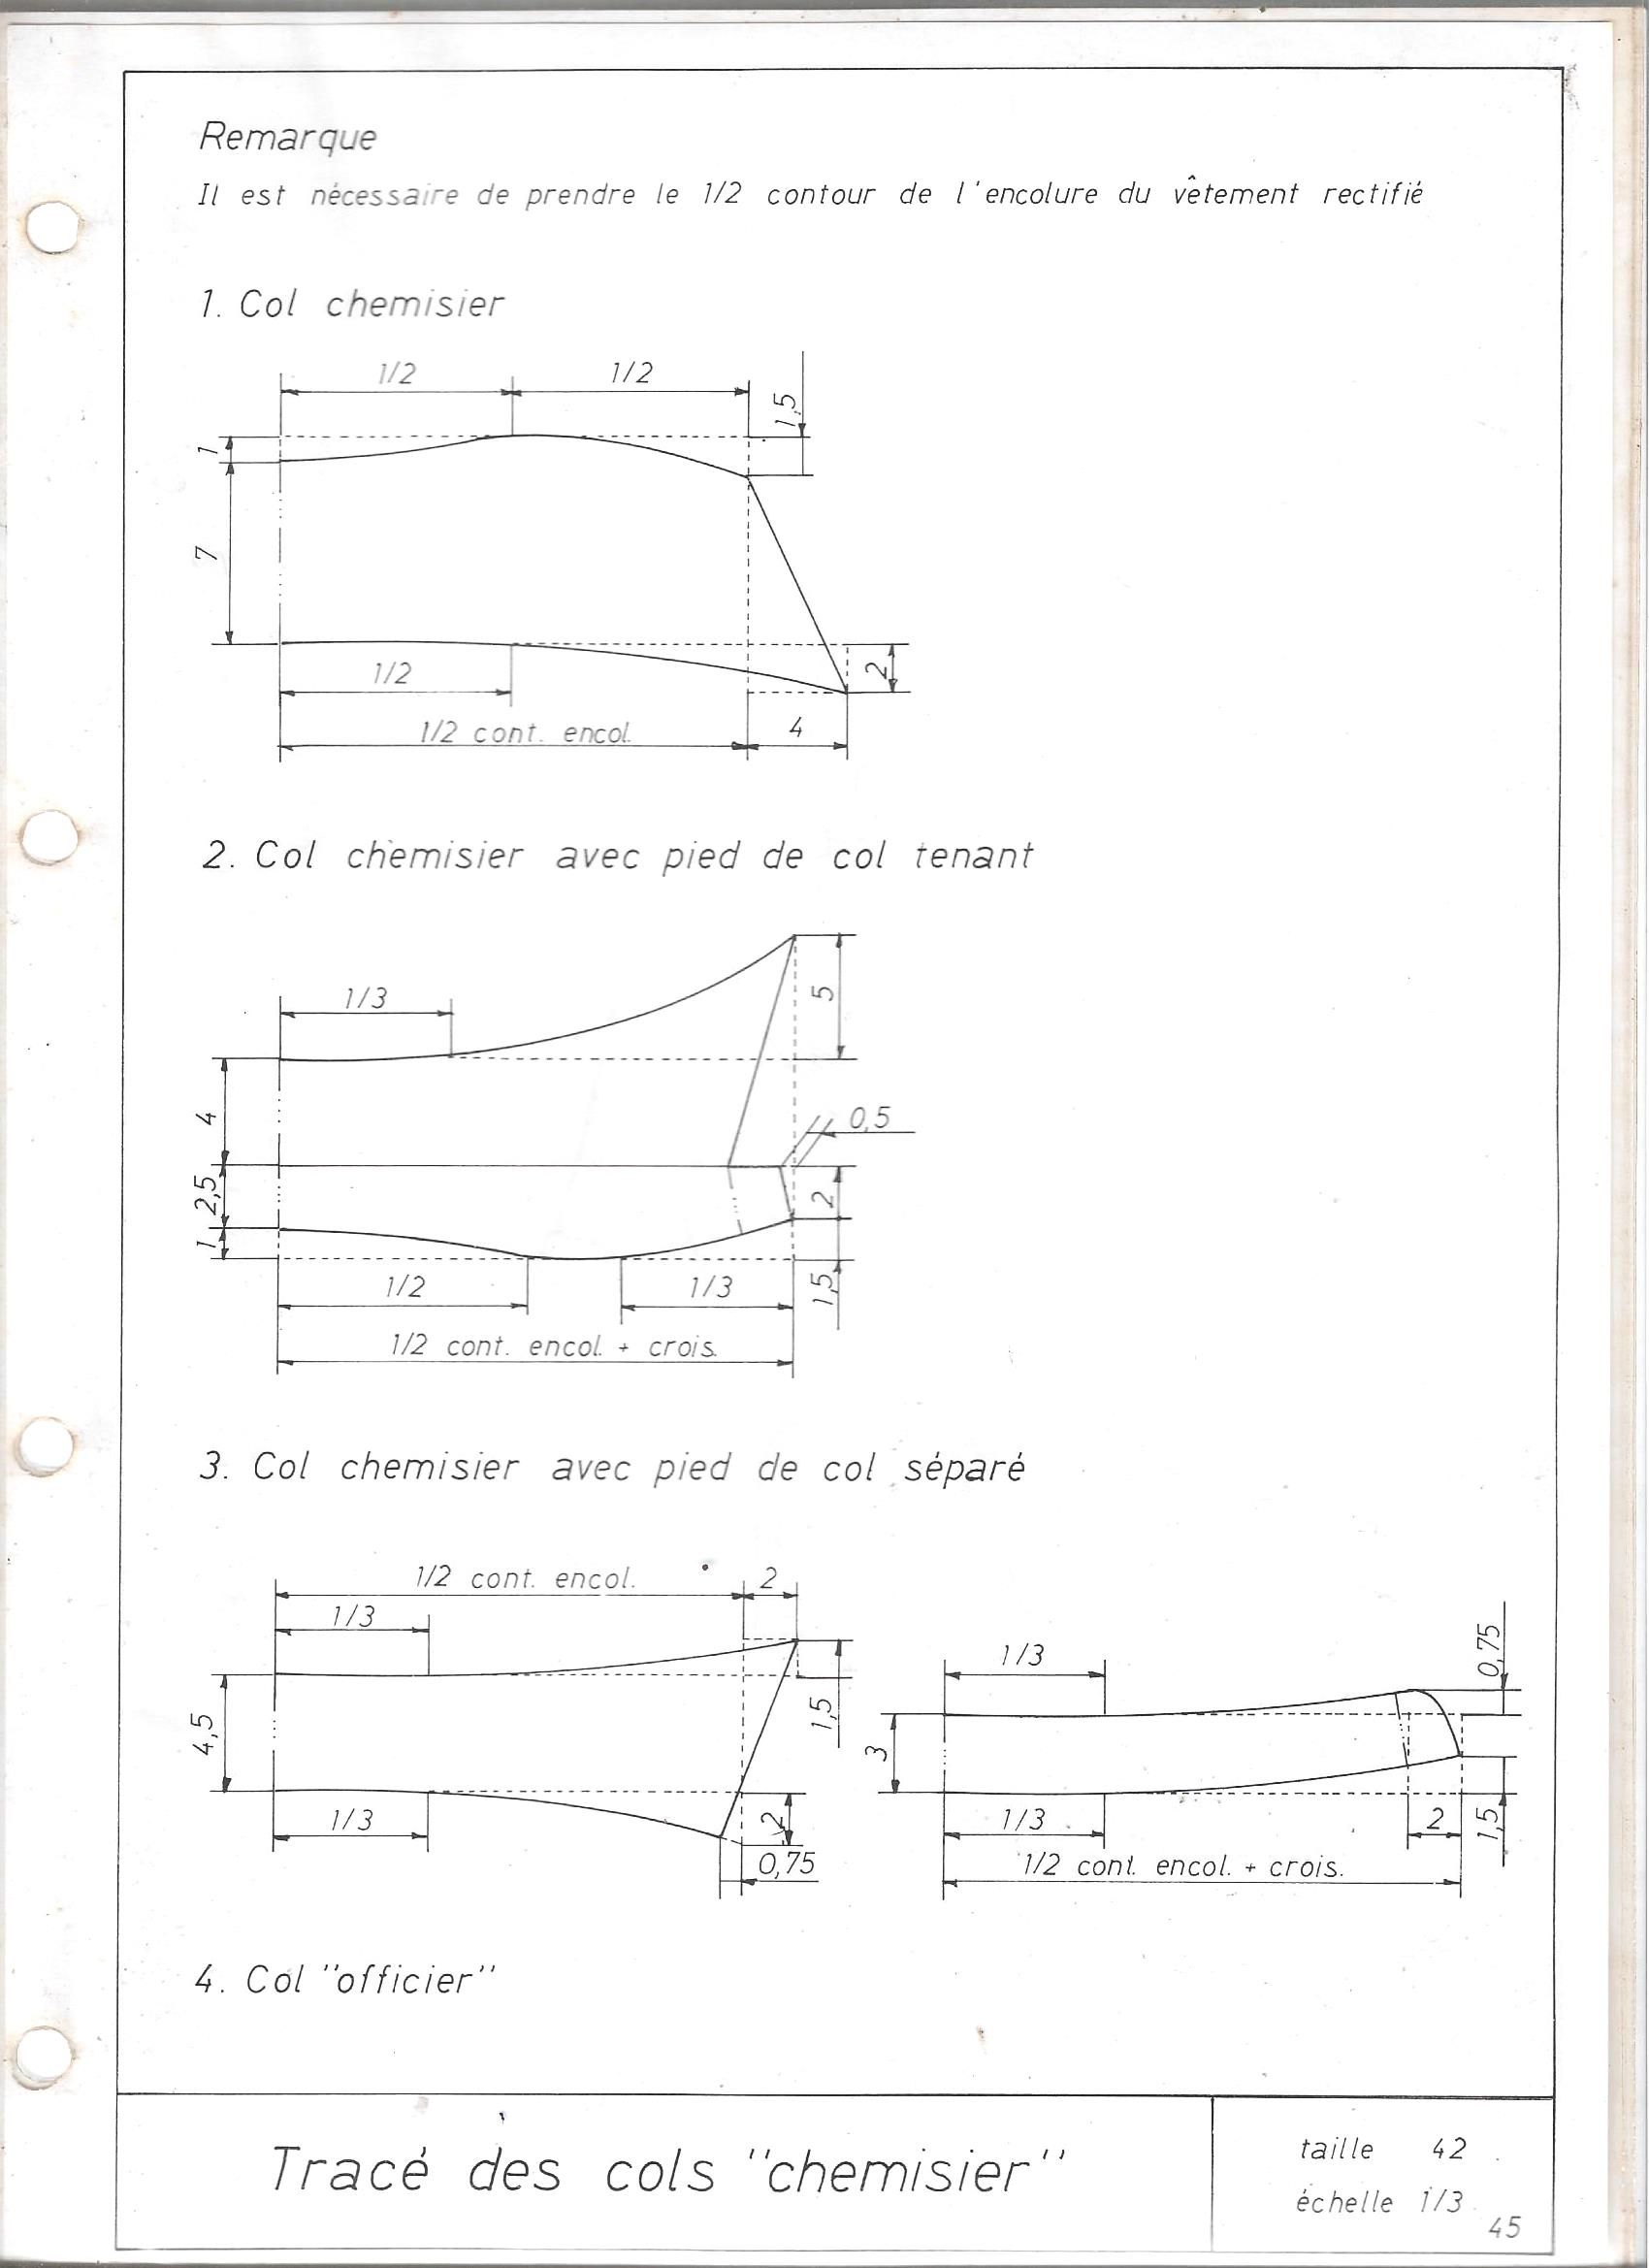 Remarque
Il est nécessaire de prendre le 1/2 contour de l'encolure du vêtement rectifié
1. Col chemisier
1/2 1/2
1,5
1
7
1/2
2
1/2 cont. encol.
4
2. Col chemisier avec pied de col tenant
1/3
5
4
0,5
2,5
2
1
1/2 1/3
1,5
1/2 cont. encol. + crois.
3. Col chemisier avec pied de col séparé
1/2 cont. encol. 2
1/3
4,5
1,5
1/3
2
0,75
1/3
0,75
3
1/3
2
1,5
1/2 cont. encol. + crois.
4. Col "officier"
Tracé des cols "chemisier"
taille 42
échelle 1/3
45